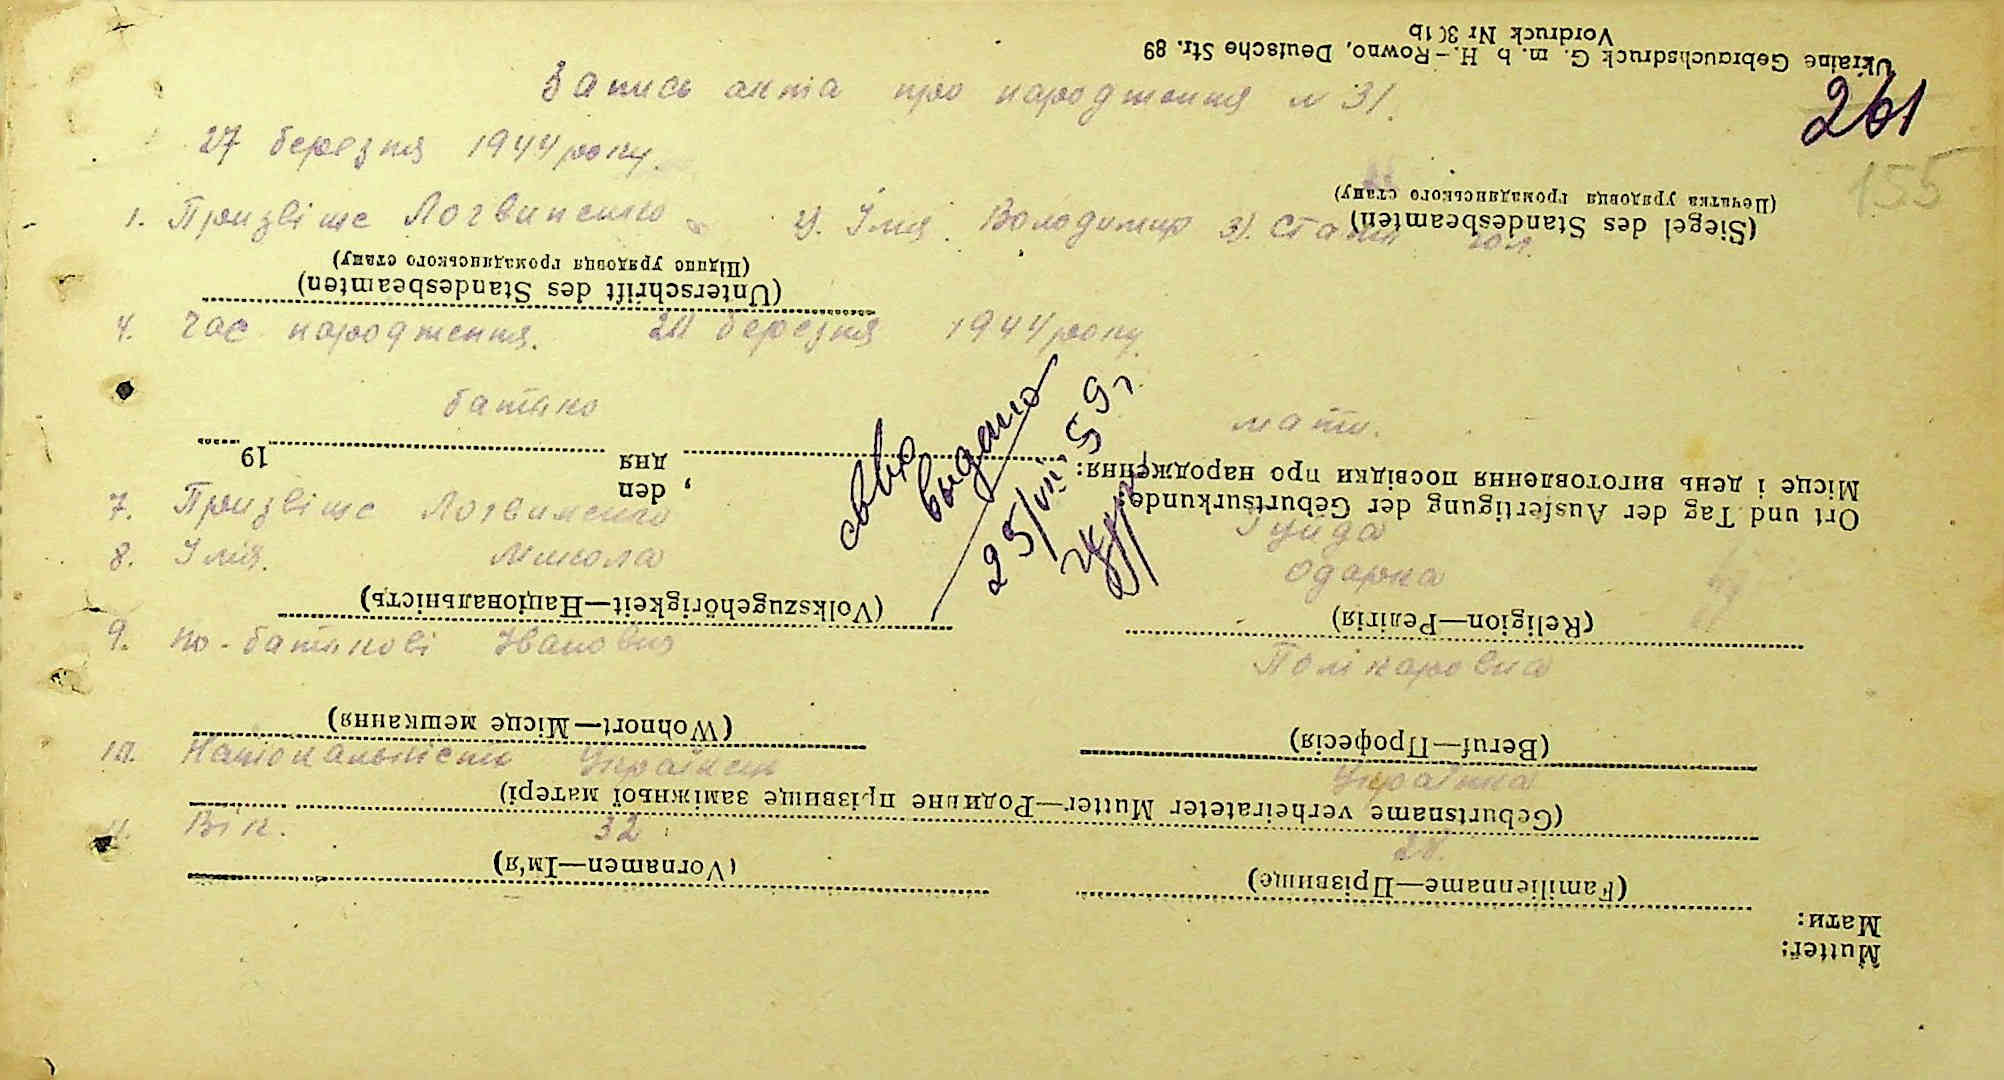 Ukraine Gebrauchsdruck G. m. b. H.–Rowno, Deutsche Str. 89
Vordruck Nr 301b
Запись акта про народження N 31.
261
27 березня 1944 року.
155
(Печатка урядовця громадянського стану)
(Siegel des Standesbeamten)
1. Призвіще Логвиненко 2). Імя. Володимир 3). Стать чол.
(Підпис урядовця громадянського стану)
(Unterschrift des Standesbeamten)
4. Час народження. 20 березня 1944 року.
батько мати.
свво
видано
25/VII-59 г.
, den
дня 19
Ort und Tag der Ausfertigung der Geburtsurkunde:
Місце і день виготовлення посвідки про народження:
7. Призвіще Логвиненко
8. Імя. Микола Одарка
(Volkszugehörigkeit—Національність)
(Religion—Релігія)
9. по-батькові Іванович Полікаровна
(Wohnort—Місце мешкання)
(Beruf—Професія)
10. Національність Українець Українка
(Geburtsname verheirateter Mutter—Родинне прізвище заміжньої матері)
11. Вік. 32 28.
(Vornamen—Ім'я)
(Familienname—Прізвище)
Mutter:
Мати: